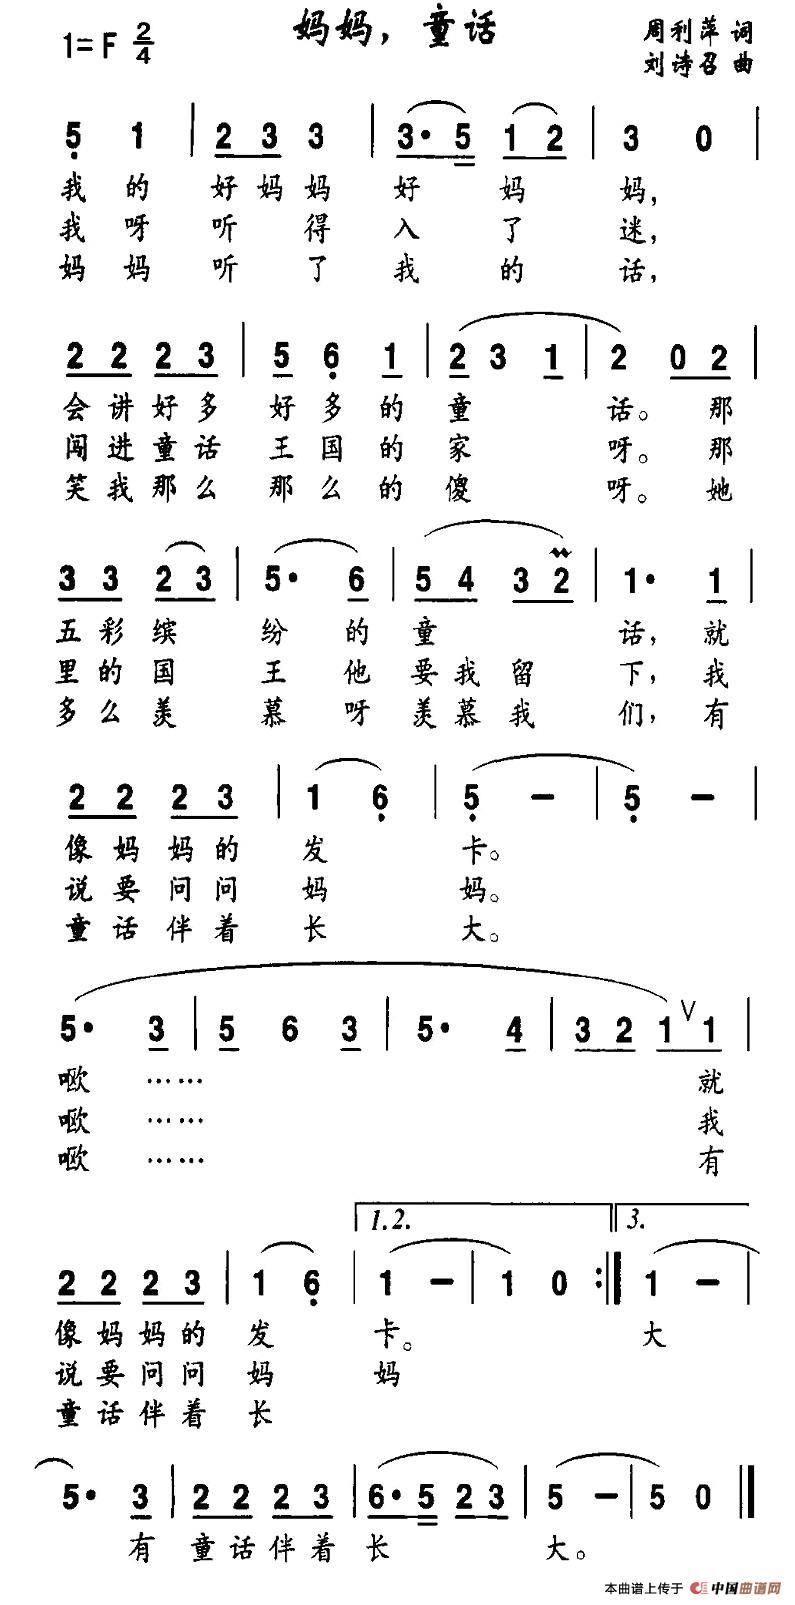 妈妈，童话
1=F 2/4
周利萍 词
刘诗召 曲
5 1 | 2 3 3 | 3· 5 1 2 | 3 0 |
我的 好妈妈 好 妈 妈，
我呀 听 得 入 了 迷，
妈妈 听 了 我 的 话，
2 2 2 3 | 5 6 1 | 2 3 1 | 2 0 2 |
会讲好多 好多的童 话。那
闯进童话 王国的家 呀。那
笑我那么 那么的傻 呀。她
3 3 2 3 | 5· 6 | 5 4 3 2 | 1· 1 |
五彩缤 纷 的 童 话，就
里的国 王 他 要我留 下，我
多么羡 慕 呀 羡慕我 们，有
2 2 2 3 | 1 6 | 5 - | 5 - |
像妈妈的 发 卡。
说要问问 妈 妈。
童话伴着 长 大。
5· 3 | 5 6 3 | 5· 4 | 3 2 1 V 1 |
呕 …… 就
呕 …… 我
呕 …… 有
1.2. 3.
2 2 2 3 | 1 6 | 1 - | 1 0 :| 1 - |
像妈妈的 发 卡。 大
说要问问 妈 妈
童话伴着 长
5· 3 | 2 2 2 3 | 6· 5 2 3 | 5 - | 5 0 ||
有 童话伴着 长 大。
本曲谱上传于 中国曲谱网